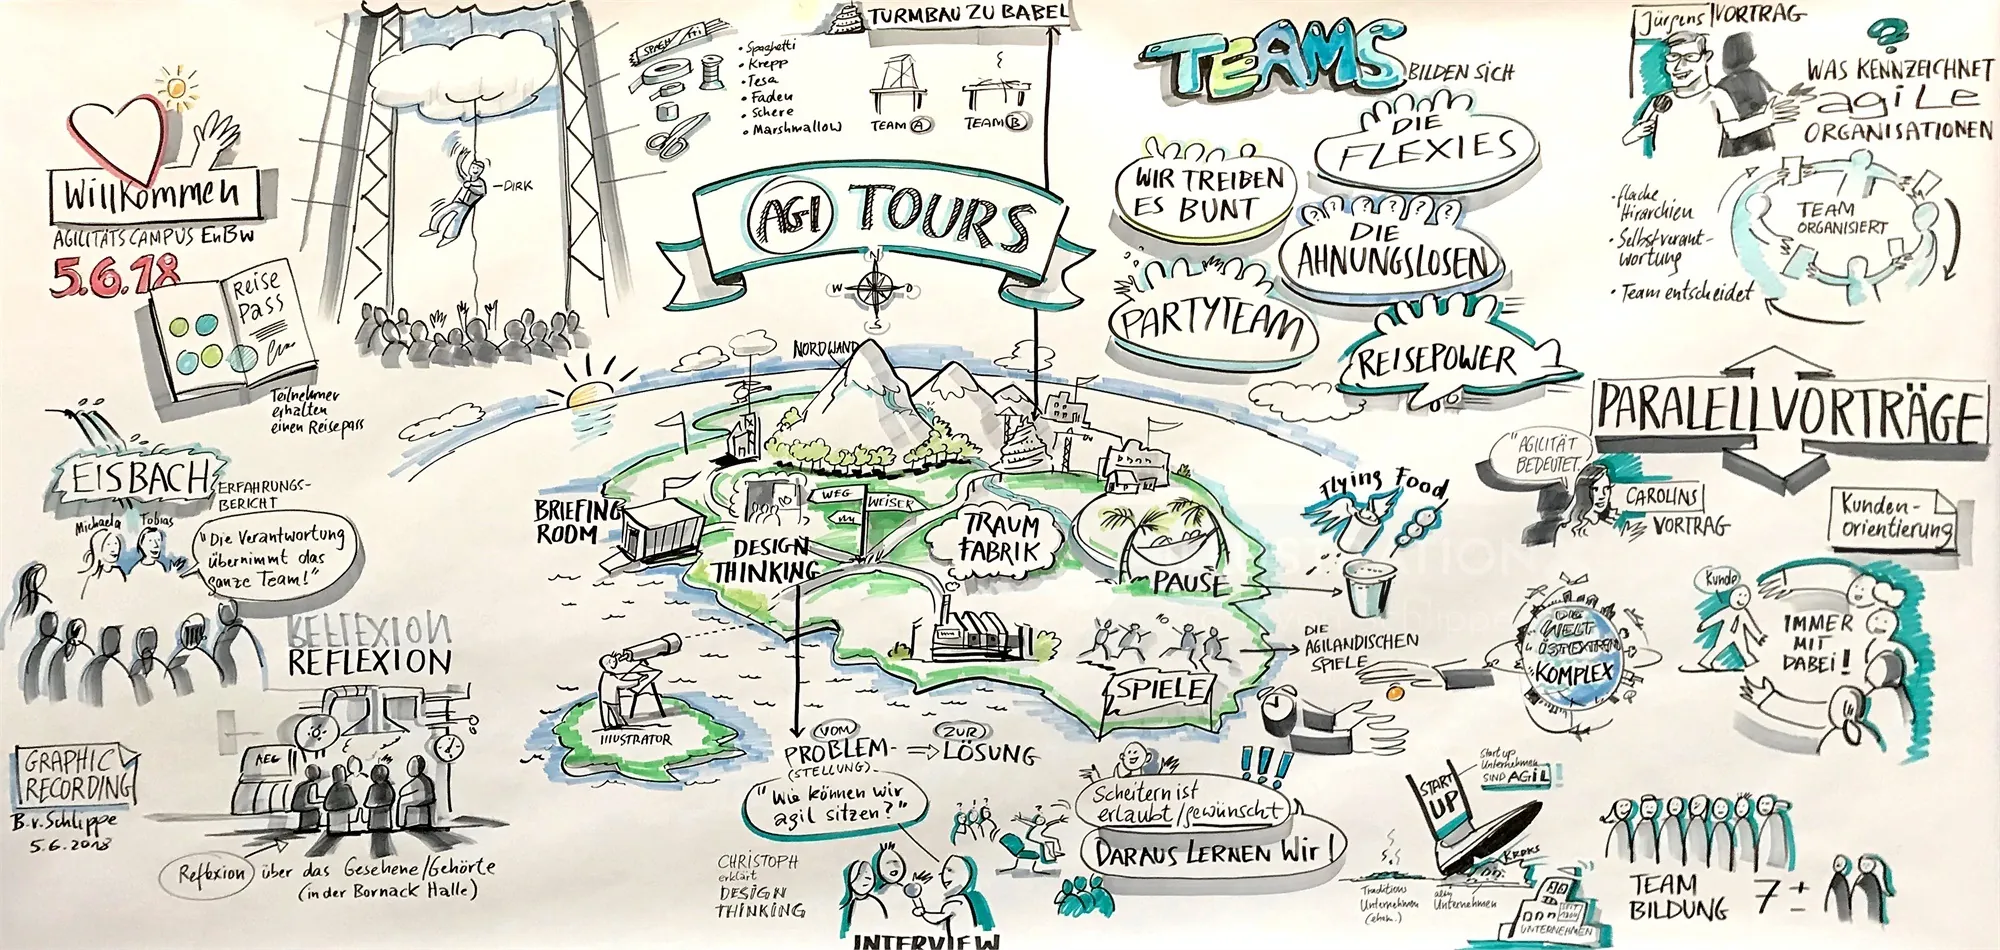 Willkommen
AGILITÄTSCAMPUS EnBW
5.6.18
REISE
PASS
Teilnehmer
erhalten
einen Reisepass
DIRK
TURMBAU ZU BABEL
SPAGHETTI
• Spaghetti
• Krepp
• Tesa
• Faden
• Schere
• Marshmallow
TEAM A
TEAM B
AGI TOURS
N
W
O
S
TEAMS
BILDEN SICH
DIE
FLEXIES
WIR TREIBEN
ES BUNT
DIE
AHNUNGSLOSEN
PARTYTEAM
REISEPOWER
Jürgens VORTRAG
?
WAS KENNZEICHNET
agiLe
ORGANISATIONEN
• flache
Hirarchien
• Selbstverant-
wortung
• Team entscheidet
TEAM
ORGANISIERT
PARALELLVORTRÄGE
"AGILITÄT
BEDEUTET.
CAROLINS
VORTRAG
Kunden-
orientierung
Kunde
IMMER
MIT
DABEI!
DIE
WELT
IST EXTREM
KOMPLEX
EISBACH
ERFAHRUNGS-
BERICHT
Michaela
Tobias
"Die Verantwortung
übernimmt das
ganze Team!"
REFLEXION
REFLEXION
AEG
Reflexion über das Gesehene/Gehörte
(in der Bornack Halle)
GRAPHIC
RECORDING
B.v.Schlippe
5.6.2018
NORDWAND
BRIEFING
ROOM
DESIGN
THINKING
WEG
WEISER
TRAUM
FABRIK
PAUSE
Flying Food
SPIELE
DIE
AGILANDISCHEN
SPIELE
ILLUSTRATOR
VOM
PROBLEM-
(STELLUNG)
ZUR
LÖSUNG
"Wie können wir
agil sitzen?"
CHRISTOPH
erklärt
DESIGN
THINKING
INTERVIEW
!!!
Scheitern ist
erlaubt/gewünscht
DARAUS LERNEN WIR!
START
UP
Start up
Unternehmen
SIND AGIL!
KROKS
Traditions
Unternehmen
(ehem.)
Unternehmen
UNTERNEHMEN
TEAM
BILDUNG
7 ±